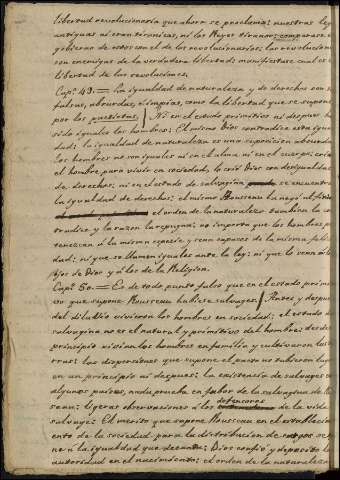 libertad revolucionaria que ahora se proclama: nuestras leyes
antiguas ni eran tiranicas, ni los Reyes tiranos: comparase el
gobierno de estos con el de los revolucionarios: las revoluciones
son enemigas de la verdadera libertad: manifiestase cual es el
libertad de las revoluciones.
Cap. 49. = La igualdad de naturaleza y de derechos son
falsas, absurdas, é impias, como la libertad que se supone
por los Ni en el estado primitivo ni despues ha
sido iguales los hombres: El mismo Dios contradice esta igual
dad: la igualdad de naturaleza es una suposicion absurda
los hombres no son iguales ni en el alma ni en el cuerpo: crió
el hombre para vivir en sociedad, lo crió Dios con desigualdad
de derechos; ni en el estado de salvagina se encuentra
la igualdad de derechos: el mismo Rousseau la negó al
el orden de la naturaleza tambien la con
tradice y la razon la repugna: no importa que los hombres per
tenezcan á la misma especie y sean capaces de la misma felici
dad; ni que se llamen iguales ante la ley: ni que lo sean á los
ojos de Dios y á los de la Religion.
Cap. 50. = Es de todo punto falso que en el estado primiti
vo que supone Rousseau hubiese salvages Antes y despues
del diluvio vivieron los hombres en sociedad; el estado de
salvagina no es el natural y primitivo del hombre: desde el
principio vivian los hombres en familia y cultivaron las
tierras: las dispersiones que supone el pacto no hubieron lugar
en un principio ni despues: la existencia de salvages en
algunos paises, nada prueba en favor de la salvagina de Rous
seau: ligeras observaciones á los defensores de la vida
salvage: El merito que supone Rousseau en el establecimi
ento de la sociedad para la distribucion de cargos se
ne á la igualdad que decanta: Dios confió y depositó la
autoridad en el nacimiento; el orden de la naturaleza